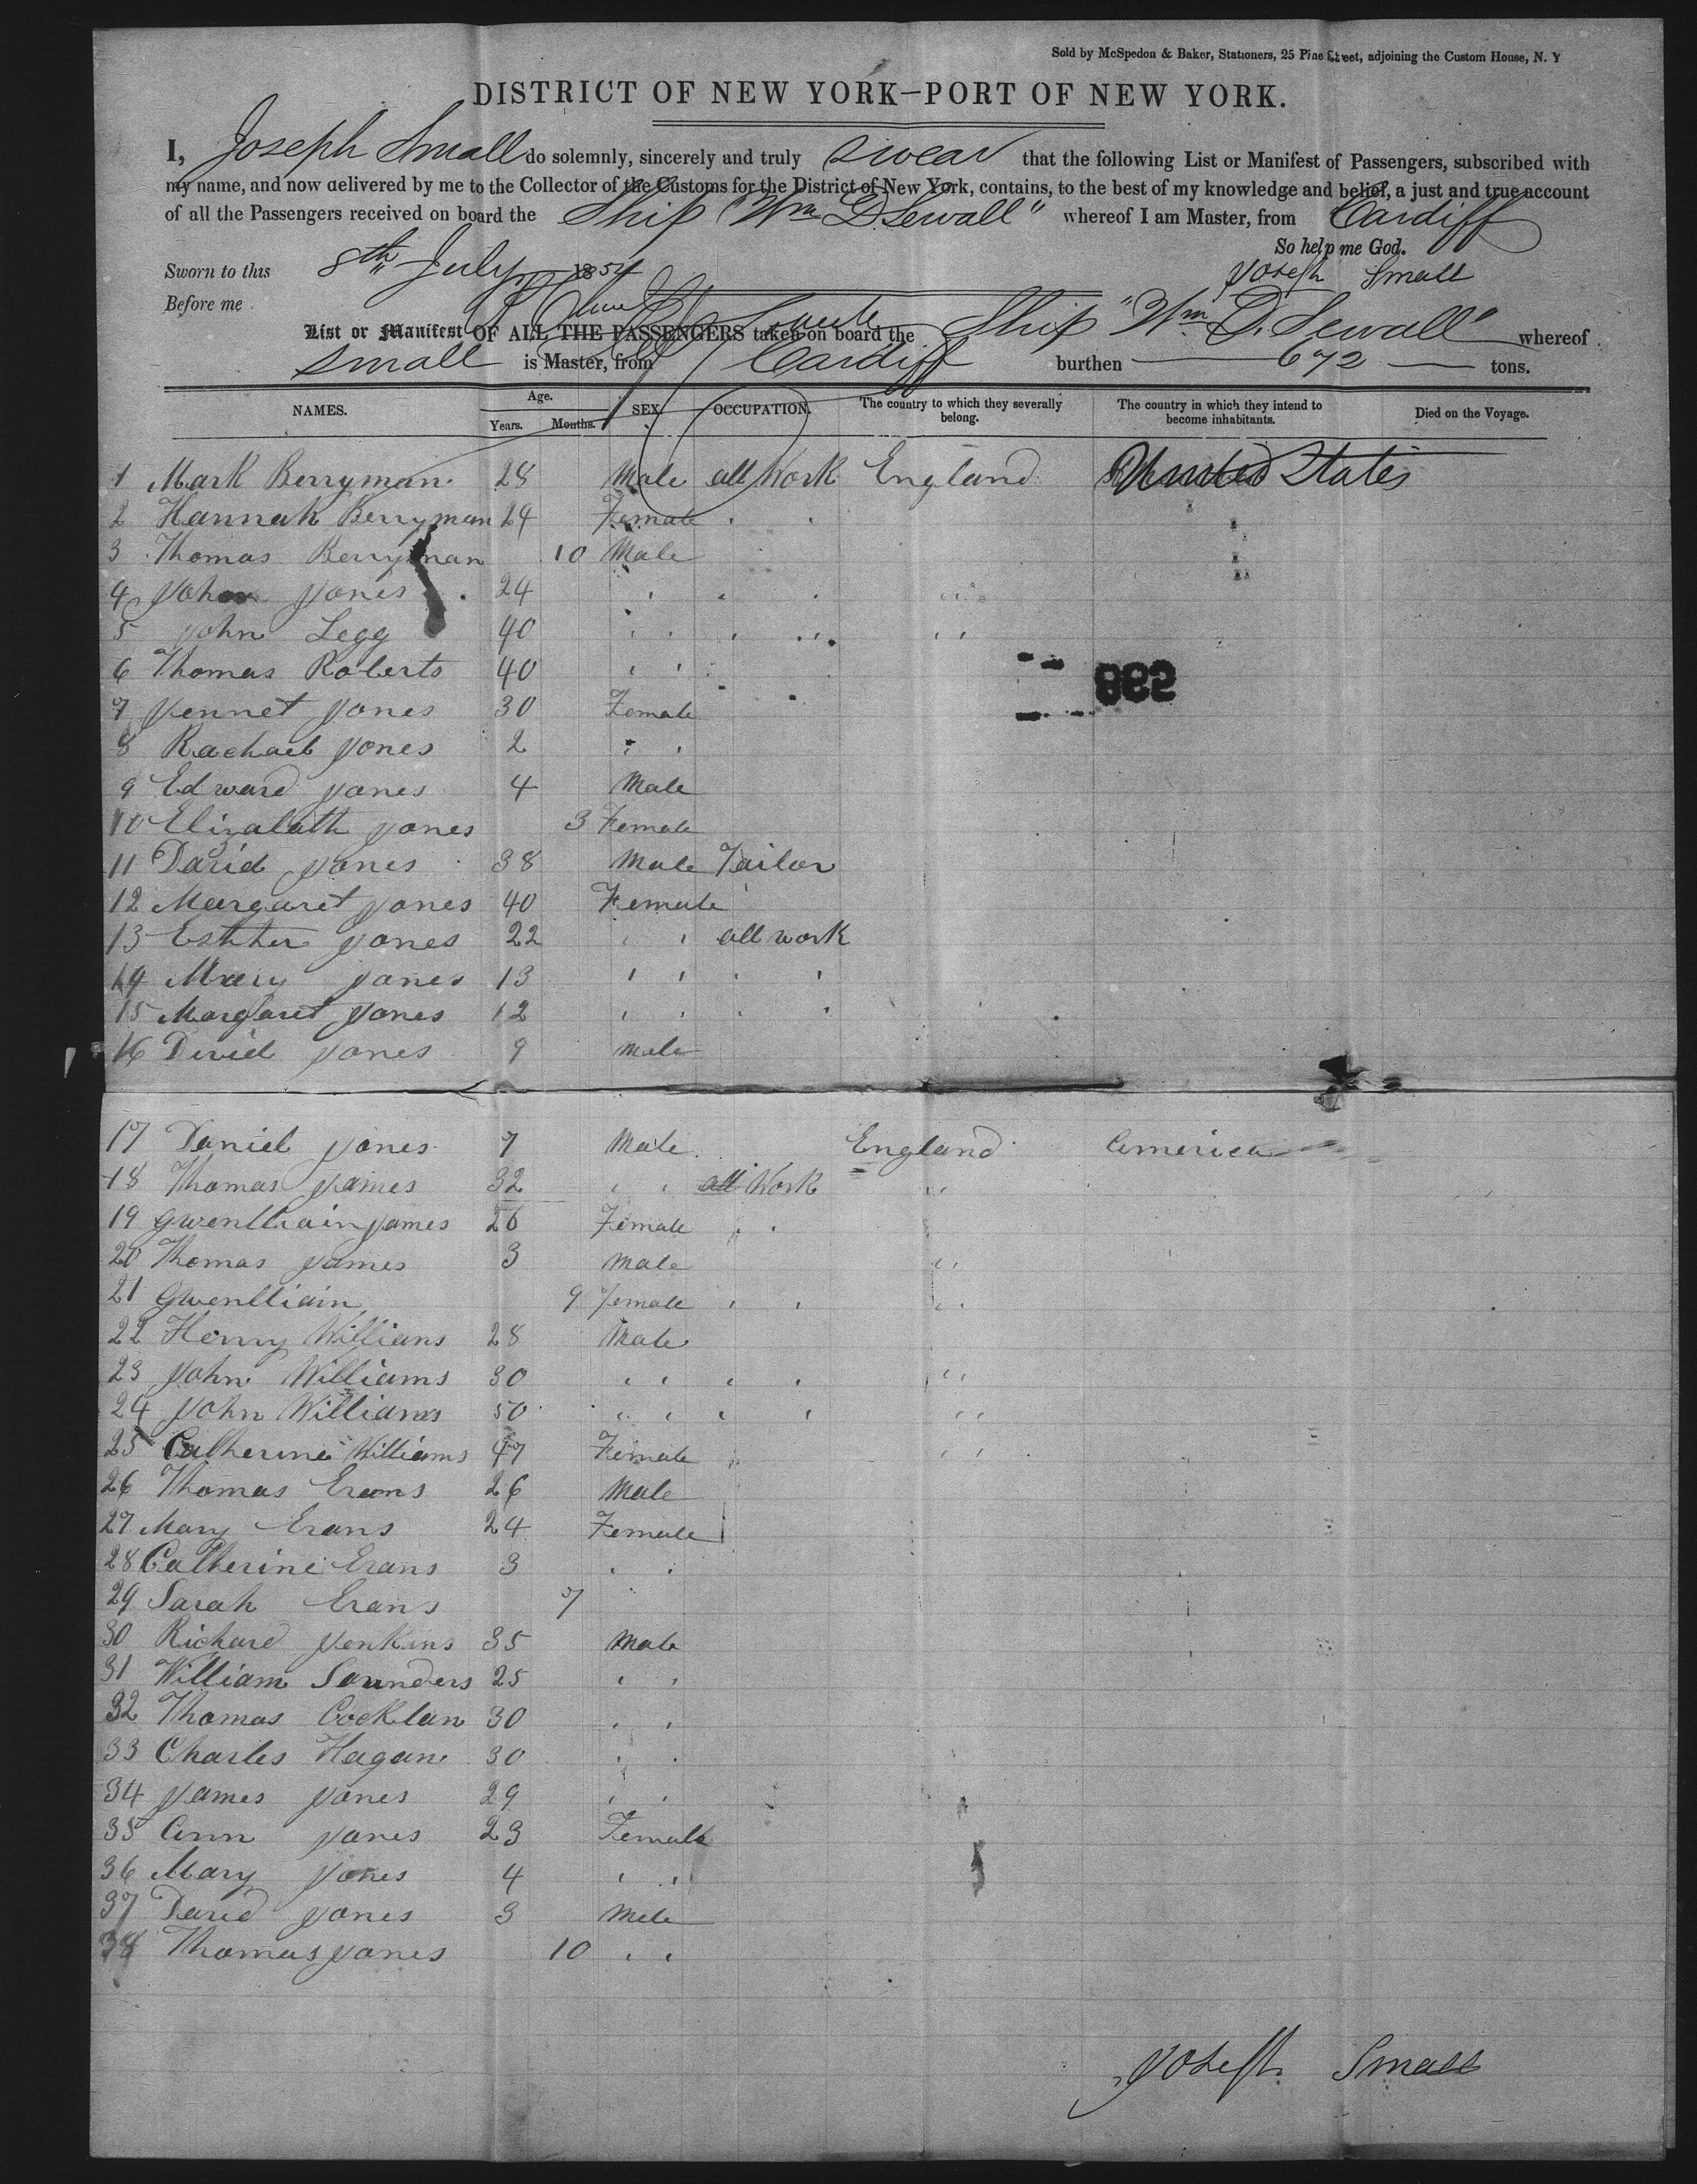 Sold by McSpedon & Baker, Stationers, 25 Pine Street, adjoining the Custom House, N. Y
DISTRICT OF NEW YORK—PORT OF NEW YORK.
I, Joseph Small do solemnly, sincerely and truly swear that the following List or Manifest of Passengers, subscribed with
my name, and now delivered by me to the Collector of the Customs for the District of New York, contains, to the best of my knowledge and belief, a just and true account
of all the Passengers received on board the Ship "Wm D. Sewall" whereof I am Master, from Cardiff
So help me God.
Sworn to this 8th July 1854 Joseph Small
Before me
List or Manifest OF ALL THE PASSENGERS taken on board the Ship "Wm D. Sewall" whereof
Small is Master, from Cardiff burthen 672 tons.
NAMES. Age. Years. Months. SEX. OCCUPATION. The country to which they severally belong. The country in which they intend to become inhabitants. Died on the Voyage.
1 Mark Berryman 28 Male all Work England United States
2 Hannah Berryman 24 Female
3 Thomas Berryman 10 Male
4 John Jones 24 " "
5 John Legg 40 " "
6 Thomas Roberts 40 " "
7 Jennet Jones 30 Female
8 Rachael Jones 2 " "
9 Edward Jones 4 Male
10 Elizabath Jones 3 Female
11 David Jones 38 Male Tailor
12 Margaret Jones 40 Female
13 Esther Jones 22 " " all work
14 Mary Jones 13 " " " "
15 Margaret Jones 12 " " " "
16 David Jones 9 Male
17 Daniel Jones 7 Male England America
18 Thomas James 32 " " all Work "
19 Gwenllian James 26 Female " "
20 Thomas James 3 Male "
21 Gwenllian 9 Female " " "
22 Henry Williams 28 Male
23 John Williams 30 " " " " "
24 John Williams 50 " " " " "
25 Catherine Williams 47 Female " "
26 Thomas Evans 26 Male
27 Mary Evans 24 Female
28 Catherine Evans 3 " "
29 Sarah Evans 7
30 Richard Jenkins 35 Male
31 William Saunders 25 " "
32 Thomas Cocklan 30 " "
33 Charles Hagan 30 " "
34 James Jones 29 " "
35 Ann Jones 23 Female
36 Mary Jones 4 " "
37 David Jones 3 Male
38 Thomas Jones 10 " "
Joseph Small